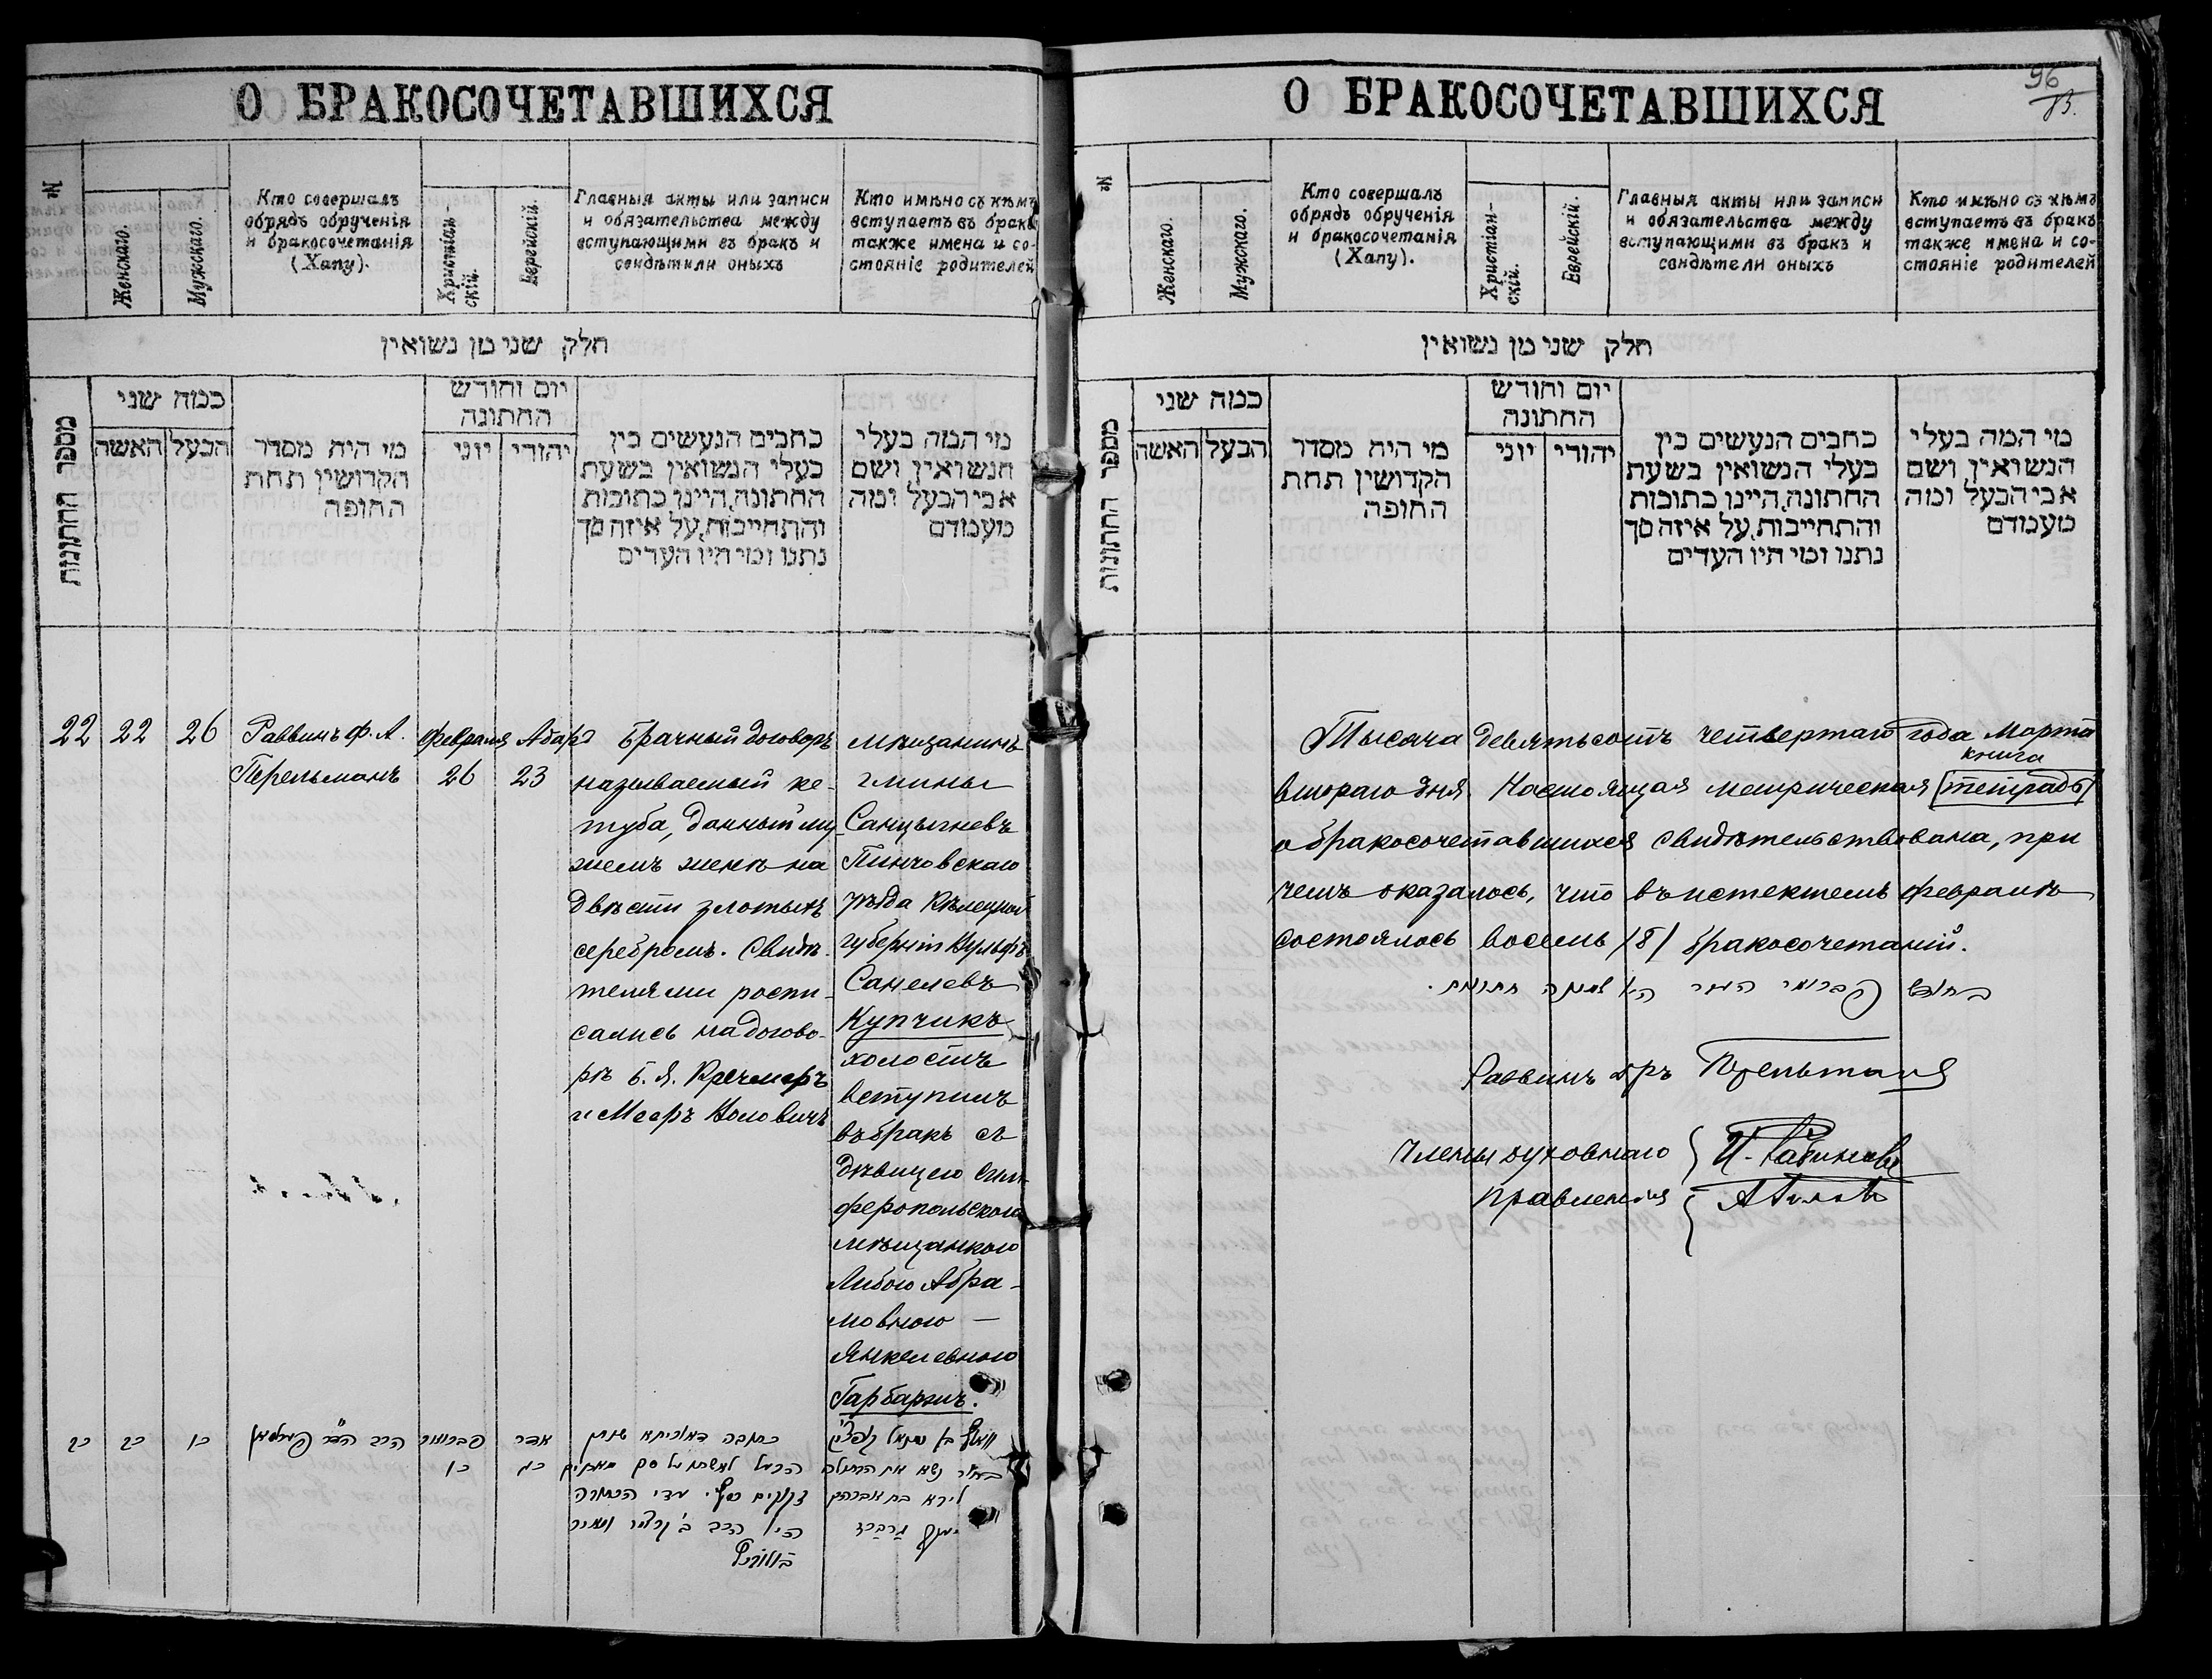 О БРАКОСОЧЕТАВШИХСЯ
№
Женскаго.
Мужскаго.
Кто совершалъ
обрядъ обрученія
и бракосочетанія
(Хапу).
Христіан-
скій.
Еврейскій.
Главныя акты или записи
и обязательства между
вступающими въ бракъ и
свидѣтили оныхъ
Кто имѣно съ кѣмъ
вступаетъ въ бракъ
также имена и со-
стояніе родителей
חלק שני מן נשואין
מספר החתונות
ככה שני
האשה
הבעל
מי הית מסדר
הקדושין תחת
החופה
יום וחודש
החתונה
יוני
יהודי
כחבים הנעשים בין
בעלי הנשואין בשעת
החתונה, היינו כתובות
והתחייבות, על איזה סך
נתנו ומי היו העדים
מי המה בעלי
הנשואין ושם
אבי הבעל ומה
מעמדם
22
22
26
Раввинъ Ф. А.
Перельманъ
Февраля
26
Адаръ
23
Брачный договоръ
называемый ке-
туба, данный му-
жемъ женѣ на
двѣсти злотыхъ
серебромъ. Свидѣ-
телями роспи-
сались на догово-
рѣ Б. Я. Кречмеръ
и Мееръ
мѣщанинъ
гмины
Санцыгневъ
Пинчовскаго
уѣзда Кѣлецкой
губерніи Вульфъ
Санелевъ
Купчикъ
холостъ
вступилъ
въ бракъ съ
дѣвицею Сим-
феропольскою
мѣщанкою
Либою Абра-
мовною —
Янкелевною
Гарбаръ.
כב
כב
כו
הרב
פברואר
כו
אדר
כג
לאשתו על סך מאתים
נשא את הבתולה
בת אברהם
О БРАКОСОЧЕТАВШИХСЯ
96
№
Женскаго.
Мужскаго.
Кто совершалъ
обрядъ обрученія
и бракосочетанія
(Хапу).
Христіан-
скій.
Еврейскій.
Главныя акты или записи
и обязательства между
вступающими въ бракъ и
свидѣтели оныхъ
Кто имѣно съ кѣмъ
вступаетъ въ бракъ
также имена и со-
стояніе родителей
חלק שני מן נשואין
מספר החתונות
ככה שני
האשה
הבעל
מי הית מסדר
הקדושין תחת
החופה
יום וחודש
החתונה
יוני
יהודי
כחבים הנעשים בין
בעלי הנשואין בשעת
החתונה, היינו כתובות
והתחייבות, על איזה סך
נתנו ומי היו העדים
מי המה בעלי
הנשואין ושם
אבי הבעל ומה
מעמדם
Тысяча девятьсотъ четвертаго года Марта
книга
втораго дня. Настоящая метрическая [тетрадь]
о бракосочетавшихся свидѣтельствована, при
чемъ оказалось, что въ истекшемъ февралѣ
состоялось восемь /8/ бракосочетаній.
בחודש פברואר היו שמונה חתונות.
Раввинъ др. Перельманъ
Члены духовнаго
правленія